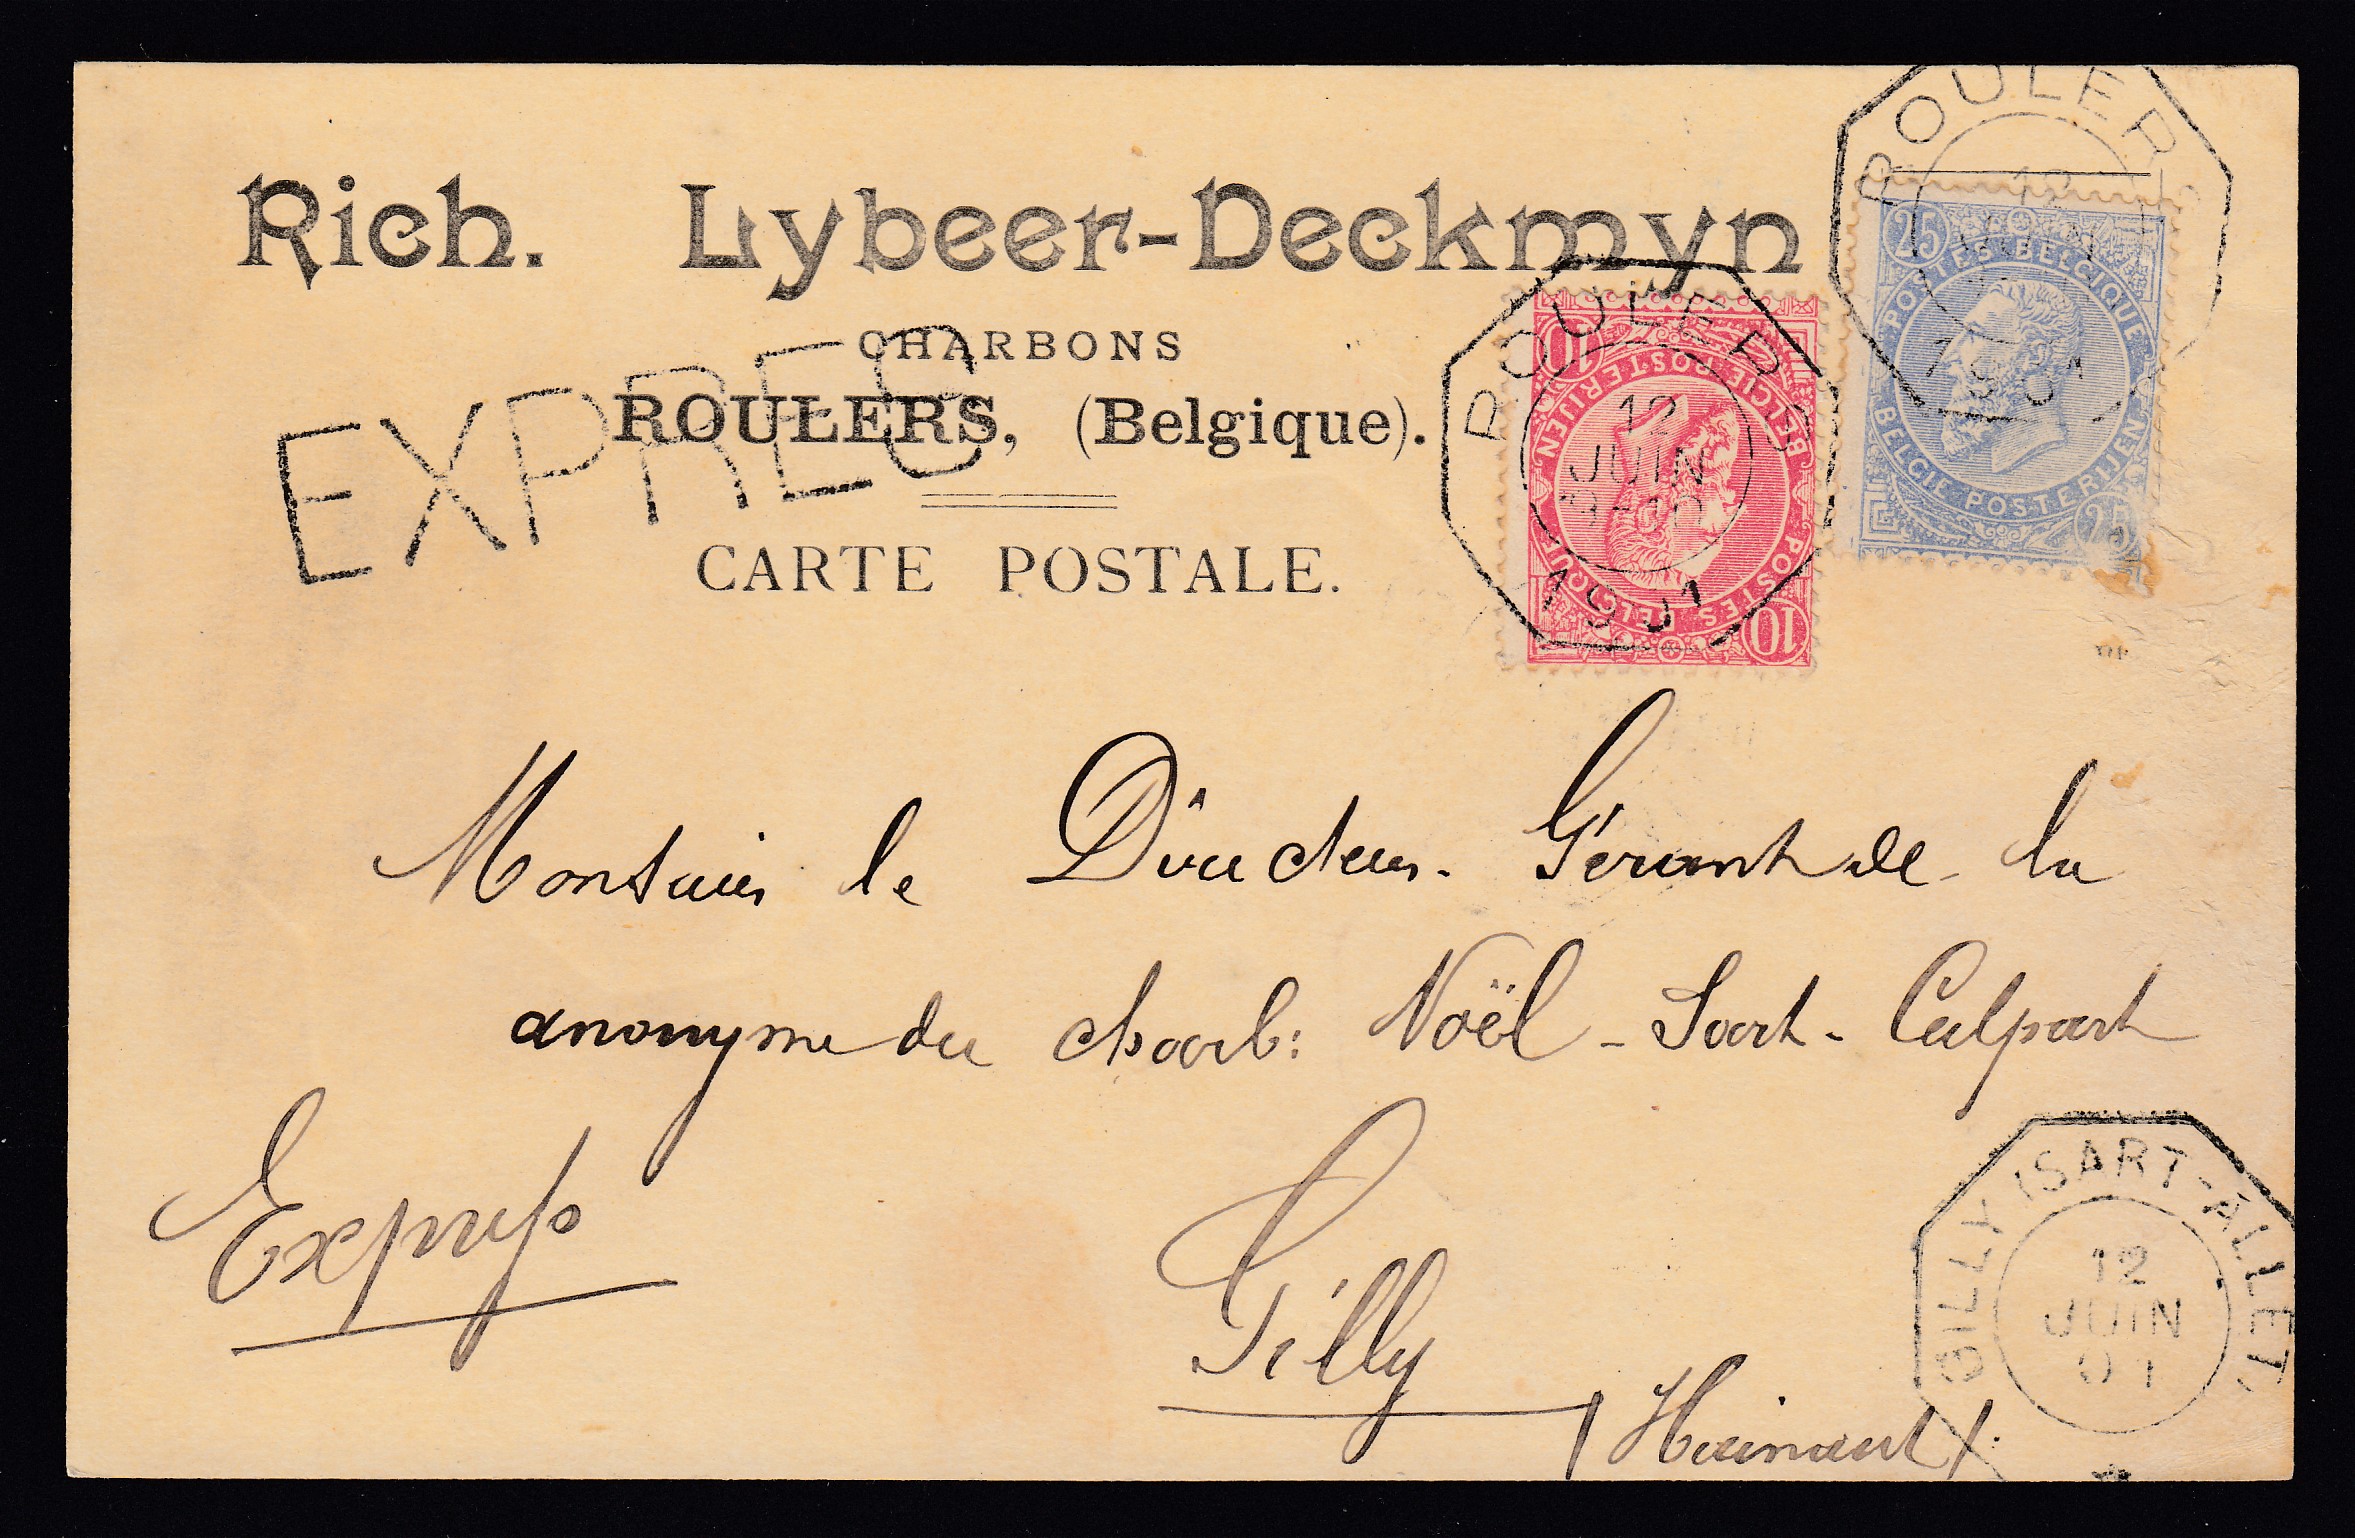 Rich. Lybeer-Deckmyn
CHARBONS
ROULERS, (Belgique).
EXPRES
CARTE POSTALE.
ROULERS
12
JUIN
1901
10
POSTES BELGIQUE
BELGIE POSTERIJEN
10
ROULERS
12
JUIN
1901
25
POSTES BELGIQUE
BELGIE POSTERIJEN
25
Monsieur le Directeur-Gérant de la
anonyme du charb: Noël-Sart-Culpart
Express
Gilly
(Hainaut).
GILLY (SART-ALLET)
12
JUIN
01